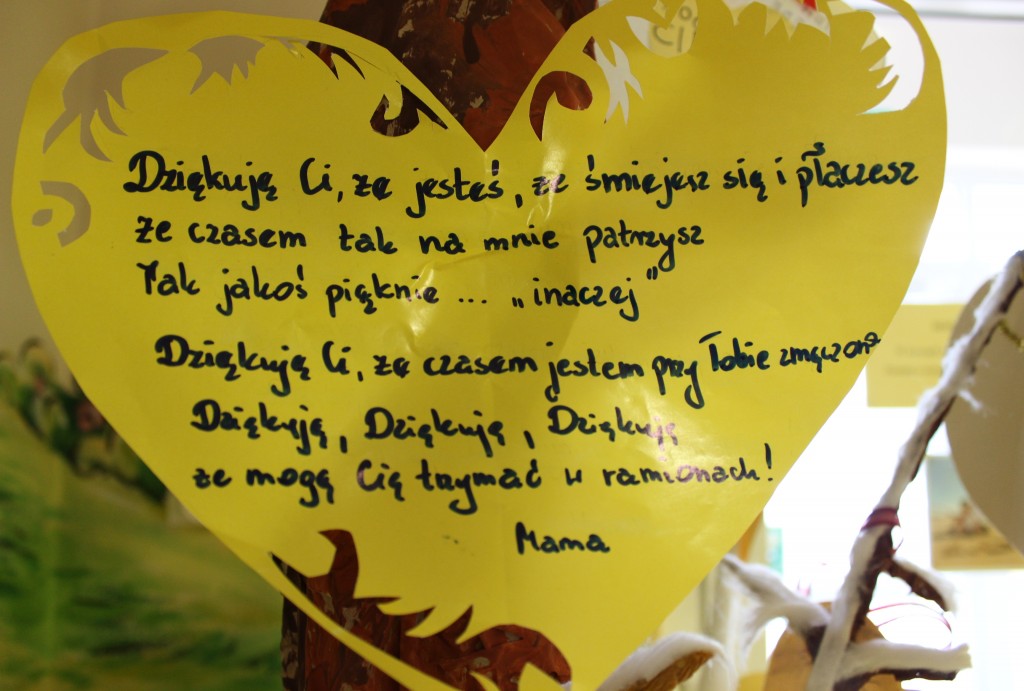 Dziękuję Ci, że jesteś, że śmiejesz się i płaczesz
że czasem tak na mnie patrzysz
Tak jakoś pięknie ... „inaczej”
Dziękuję Ci, że czasem jestem przy Tobie zmęczona
Dziękuję, Dziękuję, Dziękuję
że mogę Cię trzymać w ramionach!
Mama